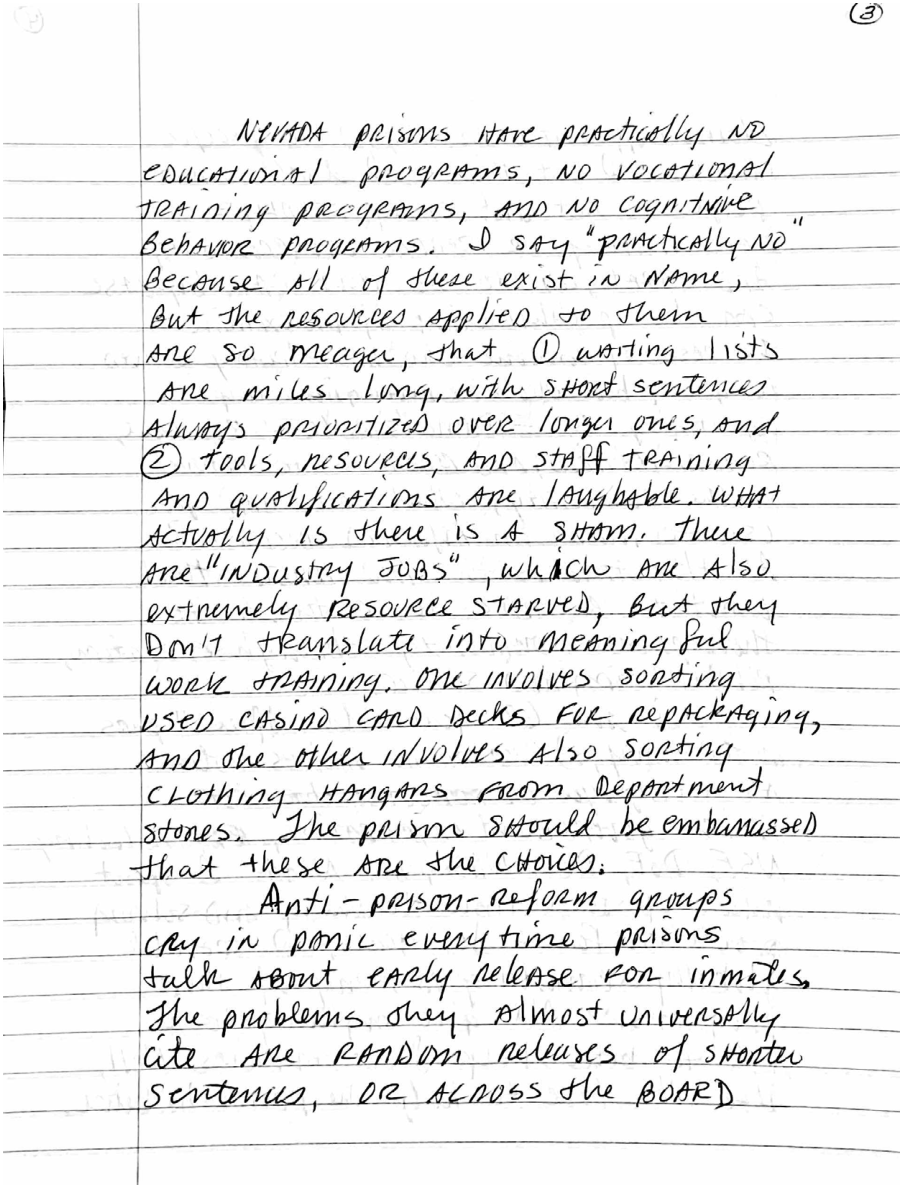 (3)
Nevada prisons have practically no
educational programs, no vocational
training programs, and no cognitnive
behavior programs. I say "practically no"
because all of these exist in name,
but the resources applied to them
are so meager, that ① waiting lists
are miles long, with short sentences
always prioritized over longer ones, and
② tools, resources, and staff training
and qualifications are laughable. What
actually is there is a sham. There
are "industry jobs", which are also
extremely resource starved, but they
don't translate into meaningful
work training. One involves sorting
used casino card decks for repackaging,
and the other involves also sorting
clothing hangars from department
stores. The prison should be embarrassed
that these are the choices.
Anti-prison-reform groups
cry in panic everytime prisons
talk about early release for inmates.
The problems they almost universally
cite are random releases of shorter
sentences, or across the board